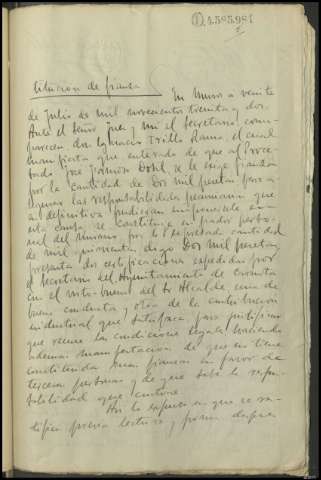 D.4.585.981
titución de fianza En Muros a veinte
de Julio de mil novecientos treinta y dos.
Ante el Señor Juez y mi el Secretario com-
parece don Ignacio Trillo Lamo, el cual
manifiesta que, enterado de que al proce-
sado José se le exige fianza
por la cantidad de dos mil pesetas para a-
segurar las responsabilidades pecuniarias que
en definitiva pudieran imponérsele en
esta causa se constituye en fiador perso-
nal del mismo por la expresada cantidad
de mil quinientas digo dos mil pesetas,
presenta dos certificaciones expedidas por
el Secretario del Ayuntamiento de
con el visto-bueno del Sr Alcalde, una de
buena conducta y otra de la contribución
industrial que satisface, para justificar
que reune las condiciones legales haciendo
ademas manifestación de que no tiene
constituida otra fianza en favor de
tercera persona y de que sabe la respon-
sabilidad que contrae.
Asi lo expresa en que se ra-
tifica previa lectura y firma despues